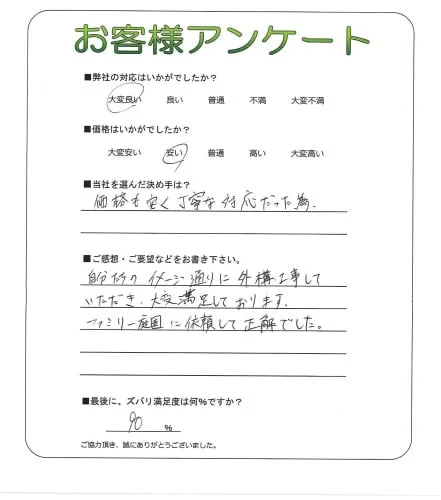 お客様アンケート
■弊社の対応はいかがでしたか?
大変良い 良い 普通 不満 大変不満
■価格はいかがでしたか?
大変安い 安い 普通 高い 大変高い
■当社を選んだ決め手は?
価格も安く丁寧な対応だった為.
■ご感想・ご要望などをお書き下さい。
自分たちのイメージ通りに外構工事して
いただき、大変満足しております.
ファミリー庭園に依頼して正解でした。
■最後に、ズバリ満足度は何%ですか?
90 %
ご協力頂き、誠にありがとうございました。